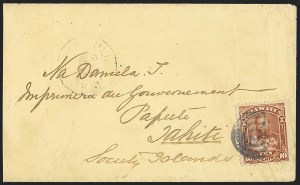 Na Daniela T.
Imprimerie du Gouvernement
Papeete
Tahiti
Society Islands
HAWAII
10 10